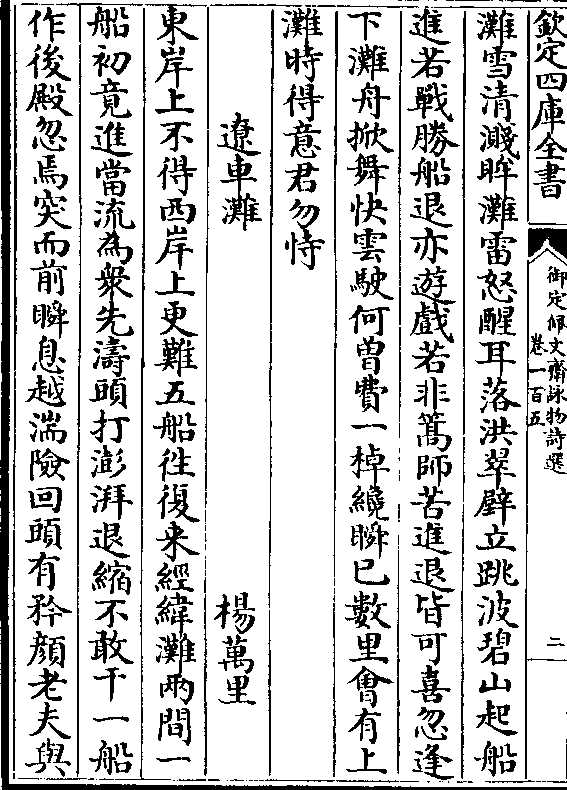 欽定四庫全書
御定佩文齋詠物詩選
卷一百五
二
灘雪清濺眸灘雷怒醒耳落洪翠壁立跳波碧山起船
進若戰勝船退亦遊戲若非篙師苦進退皆可喜忽逢
下灘舟掀舞快雲駛何曽費一棹纔瞬已數里㑹有上
灘時得意君勿恃
遼車灘
楊萬里
東岸上不得西岸上更難五船徃復来經緯灘兩間一
船初竟進當流為衆先濤頭打澎湃退縮不敢干一船
作後殿忽焉突而前瞬息越湍險回頭有矜顔老夫與